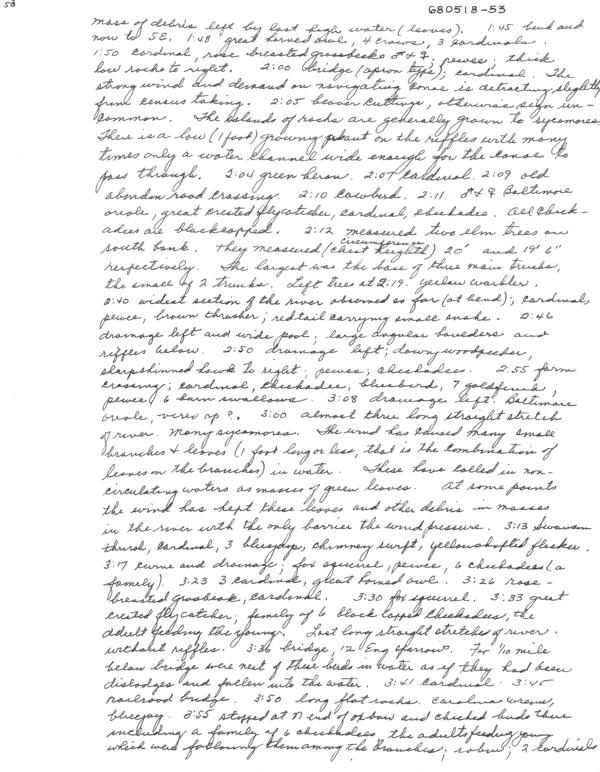 53
680518-53
mass of debris left by last high water (leaves). 1:45 bend and
now to SE, 1:48 great horned owl, 4 crows, 3 cardinals.
1:50 cardinal, rose breasted grossbeaks ♂ & ♀; pewee; thick
low rocks to right. 2:00 bridge (apron type); cardinal. The
strong wind and demand on navigating canoe is detracting slightly
from census taking. 2:05 beaver cuttings, otherwise sign un-
common. The islands of rocks are generally grown to sycamores.
There is a low (1 foot) growing plant on the riffles with many
times only a water channel wide enough for the canoe to
pass through. 2:04 green heron. 2:07 cardinal. 2:09 old
abandon road crossing. 2:10 cowbird. 2:11 ♂ & ♀ Baltimore
oriole, great crested flycatcher, cardinal, chickadee. All chick-
adees are blackcapped. 2:12 measured two elm trees on
south bank. They measured (circumference chest heighth) 20' and 19' 6"
respectively. The largest was the base of three main trunks,
the small of 2 trunks. Left trees at 2:19. yellow warbler.
2:40 widest section of the river observed so far (at bend); cardinal,
pewee, brown thrasher; redtail carrying small snake. 2:46
drainage left and wide pool; large angular boulders and
riffles below. 2:50 drainage left; downy woodpecker,
sharpshinned hawk to right; pewee; chickadee. 2:55 farm
crossing; cardinal, chickadee, bluebird, 7 goldfinch,
pewee, 6 barn swallows. 3:08 drainage left. Baltimore
oriole, vireo sp?. 3:00 almost three long straight stretch
of river. Many sycamores. The wind has caused many small
branches & leaves (1 foot long or less, that is the combination of
leaves on the branches) in water. These have collected in non-
circulating waters as masses of green leaves. At some points
the wind has kept these leaves and other debris in masses
in the river with the only barrier the wind pressure. 3:13 Swainson
thrush, cardinal, 3 bluejays, chimney swift, yellowshafted flicker.
3:17 curve and drainage; fox squirrel, pewee, 6 chickadees (a
family). 3:23 3 cardinal, great horned owl. 3:26 rose-
breasted grosbeak, cardinal. 3:30 fox squirrel. 3:33 great
crested flycatcher; family of 6 black capped chickadees, the
adult feeding the young. Last long straight stretches of river
without riffles. 3:36 bridge, 12 Eng sparrow. For 1/10 mile
below bridge were nest of these birds in water as if they had been
dislodges and fallen into the water. 3:41 cardinal. 3:45
railroad bridge. 3:50 long flat rocks. Carolina wrens,
bluejay. 3:55 stopped at N end of oxbow and checked birds there
including a family of 6 chickadees, the adults feeding young
which were following them among the branches; robin; 2 cardinals